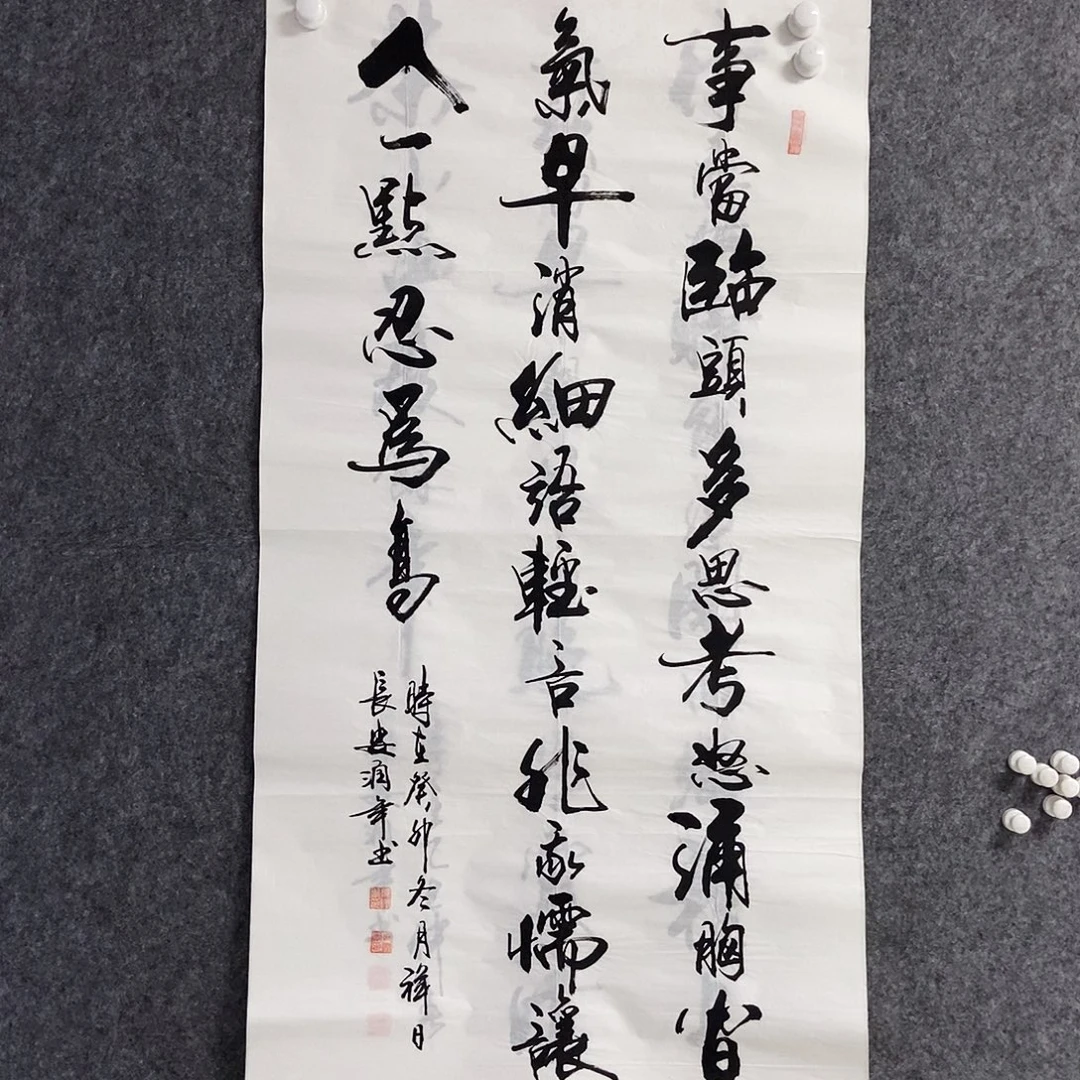 事當臨頭多思考怒涌胸間
氣早消細語輕言非我懦讓
人一點忍爲高
時在癸卯冬月祥日
長安潤年书